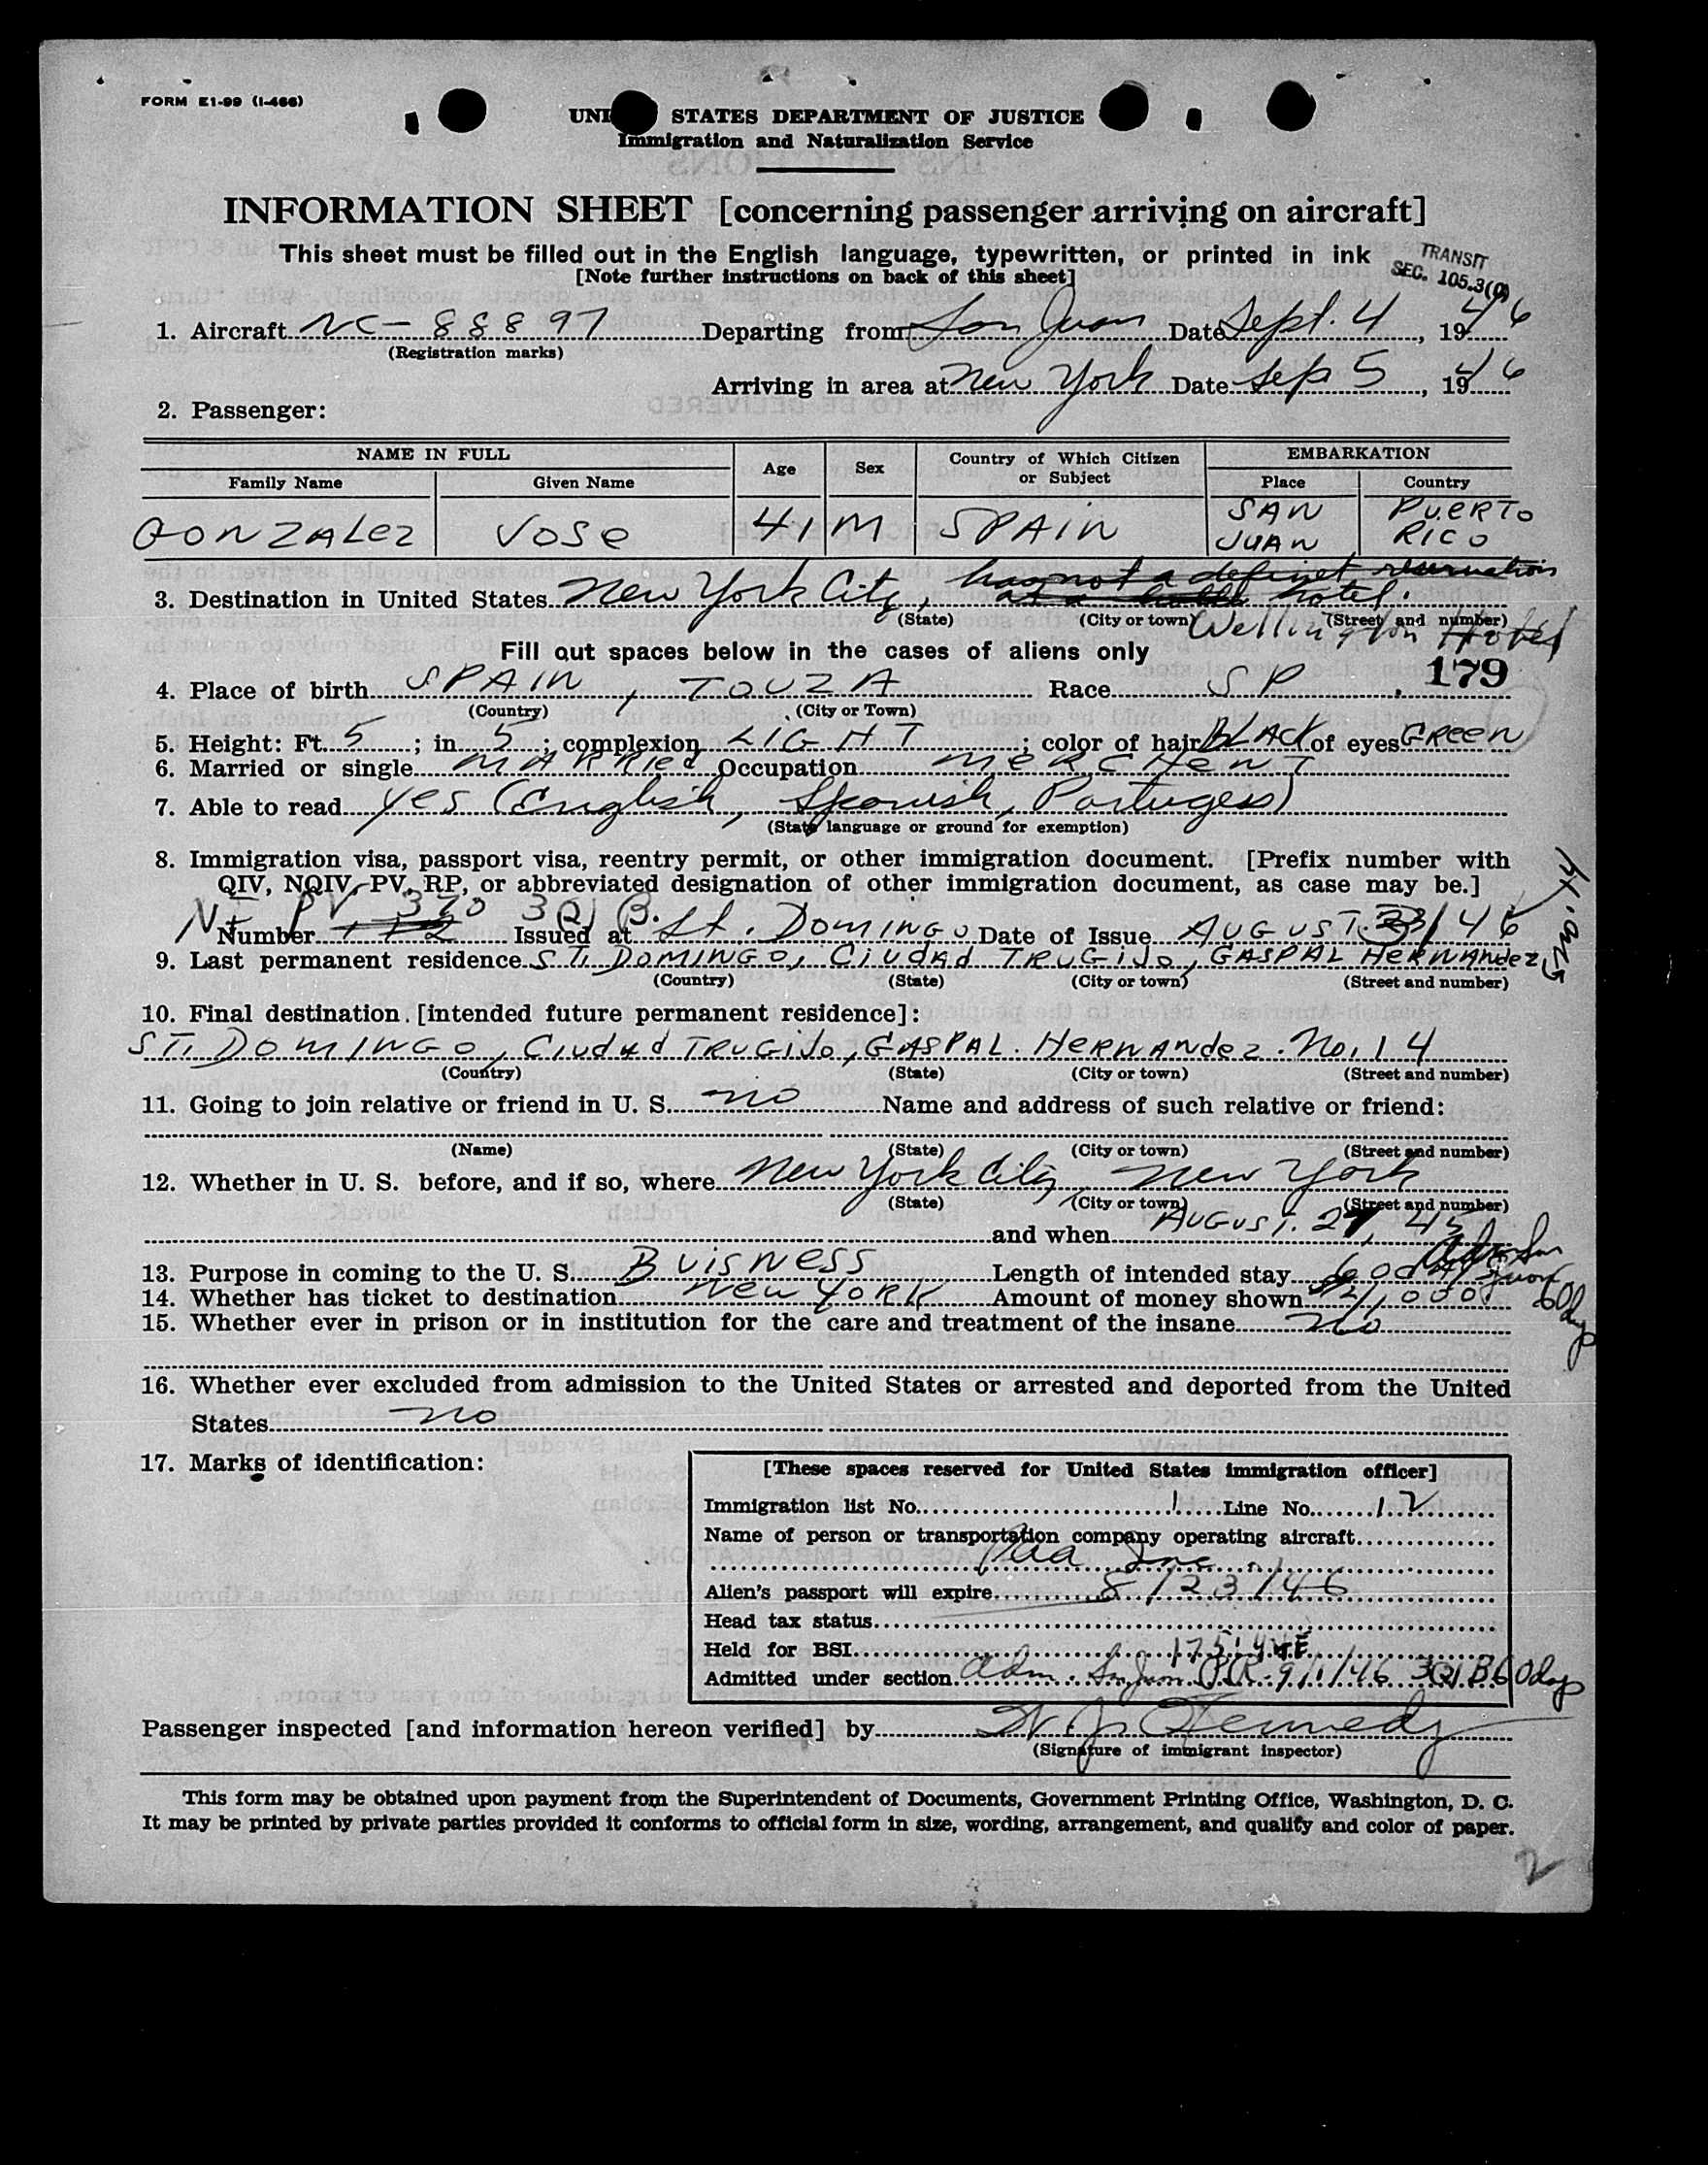 FORM E1-99 (I-466)
UNI STATES DEPARTMENT OF JUSTICE
Immigration and Naturalization Service
INFORMATION SHEET [concerning passenger arriving on aircraft]
This sheet must be filled out in the English language, typewritten, or printed in ink
[Note further instructions on back of this sheet]
TRANSIT
SEC. 105.3(C)
1. Aircraft NC-88897 Departing from San Juan Date Sept. 4, 1946
(Registration marks)
Arriving in area at New York Date Sep 5, 1946
2. Passenger:
NAME IN FULL Age Sex Country of Which Citizen or Subject EMBARKATION
Family Name Given Name Place Country
GONZALEZ JOSE 41 M SPAIN SAN JUAN PUERTO RICO
has not a definet reservation
3. Destination in United States New York City, at a hotel hotel.
(State) (City or town) (Street and number)
Wellington Hotel
Fill out spaces below in the cases of aliens only
179
4. Place of birth SPAIN, TOUZA Race SP
(Country) (City or Town)
5. Height: Ft. 5; in 5; complexion LIGHT; color of hair BLACK of eyes GREEN
6. Married or single MARRIED Occupation MERCHENT
7. Able to read yes (English, Spanish, Portugess)
(State language or ground for exemption)
8. Immigration visa, passport visa, reentry permit, or other immigration document. [Prefix number with
QIV, NQIV, PV, RP, or abbreviated designation of other immigration document, as case may be.]
PV 370 3(2) B.
Number 112 Issued at St. DOMINGO Date of Issue AUGUST. 23/46
9. Last permanent residence ST. DOMINGO, CIUDAD TRUGIJO, GASPAL HERNANDEZ
(Country) (State) (City or town) (Street and number)
10. Final destination [intended future permanent residence]:
ST. DOMINGO, CIUDAD TRUGIJO, GASPAL. HERNANDEZ. NO. 14
(Country) (State) (City or town) (Street and number)
11. Going to join relative or friend in U. S. no Name and address of such relative or friend:
(Name) (State) (City or town) (Street and number)
12. Whether in U. S. before, and if so, where New York City, New York
(State) (City or town) (Street and number)
and when AUGUST. 27, 45
13. Purpose in coming to the U. S. BUISNESS Length of intended stay 60 days
Adm San Juan 60 dys
14. Whether has ticket to destination NEW YORK Amount of money shown $2,000
15. Whether ever in prison or in institution for the care and treatment of the insane no
16. Whether ever excluded from admission to the United States or arrested and deported from the United
States no
17. Marks of identification:
[These spaces reserved for United States immigration officer]
Immigration list No. 1 Line No. 12
Name of person or transportation company operating aircraft
Paa Inc.
Alien's passport will expire 8/23/46
Head tax status
Held for BSI
Admitted under section adm. San Juan P.R. 9/1/46 3(2)B 60 dys
Passenger inspected [and information hereon verified] by Kennedy
(Signature of immigrant inspector)
This form may be obtained upon payment from the Superintendent of Documents, Government Printing Office, Washington, D. C.
It may be printed by private parties provided it conforms to official form in size, wording, arrangement, and quality and color of paper.
2